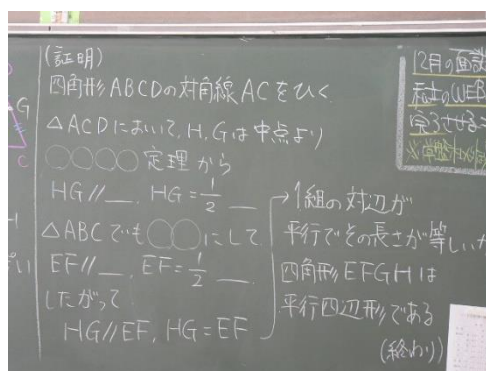 (証明)
四角形ABCDの対角線ACをひく
△ACDにおいて, H, Gは中点より
○○○○定理から
HG//__, HG=1/2 __
△ABCでも○○にして
EF//__, EF=1/2 __
したがって
HG//EF, HG=EF
→1組の対辺が
平行でその長さが等しいか
四角形EFGHは
平行四辺形である
(終わり)
G
C
12月の面談
のWEB
完了させるこ
※常盤